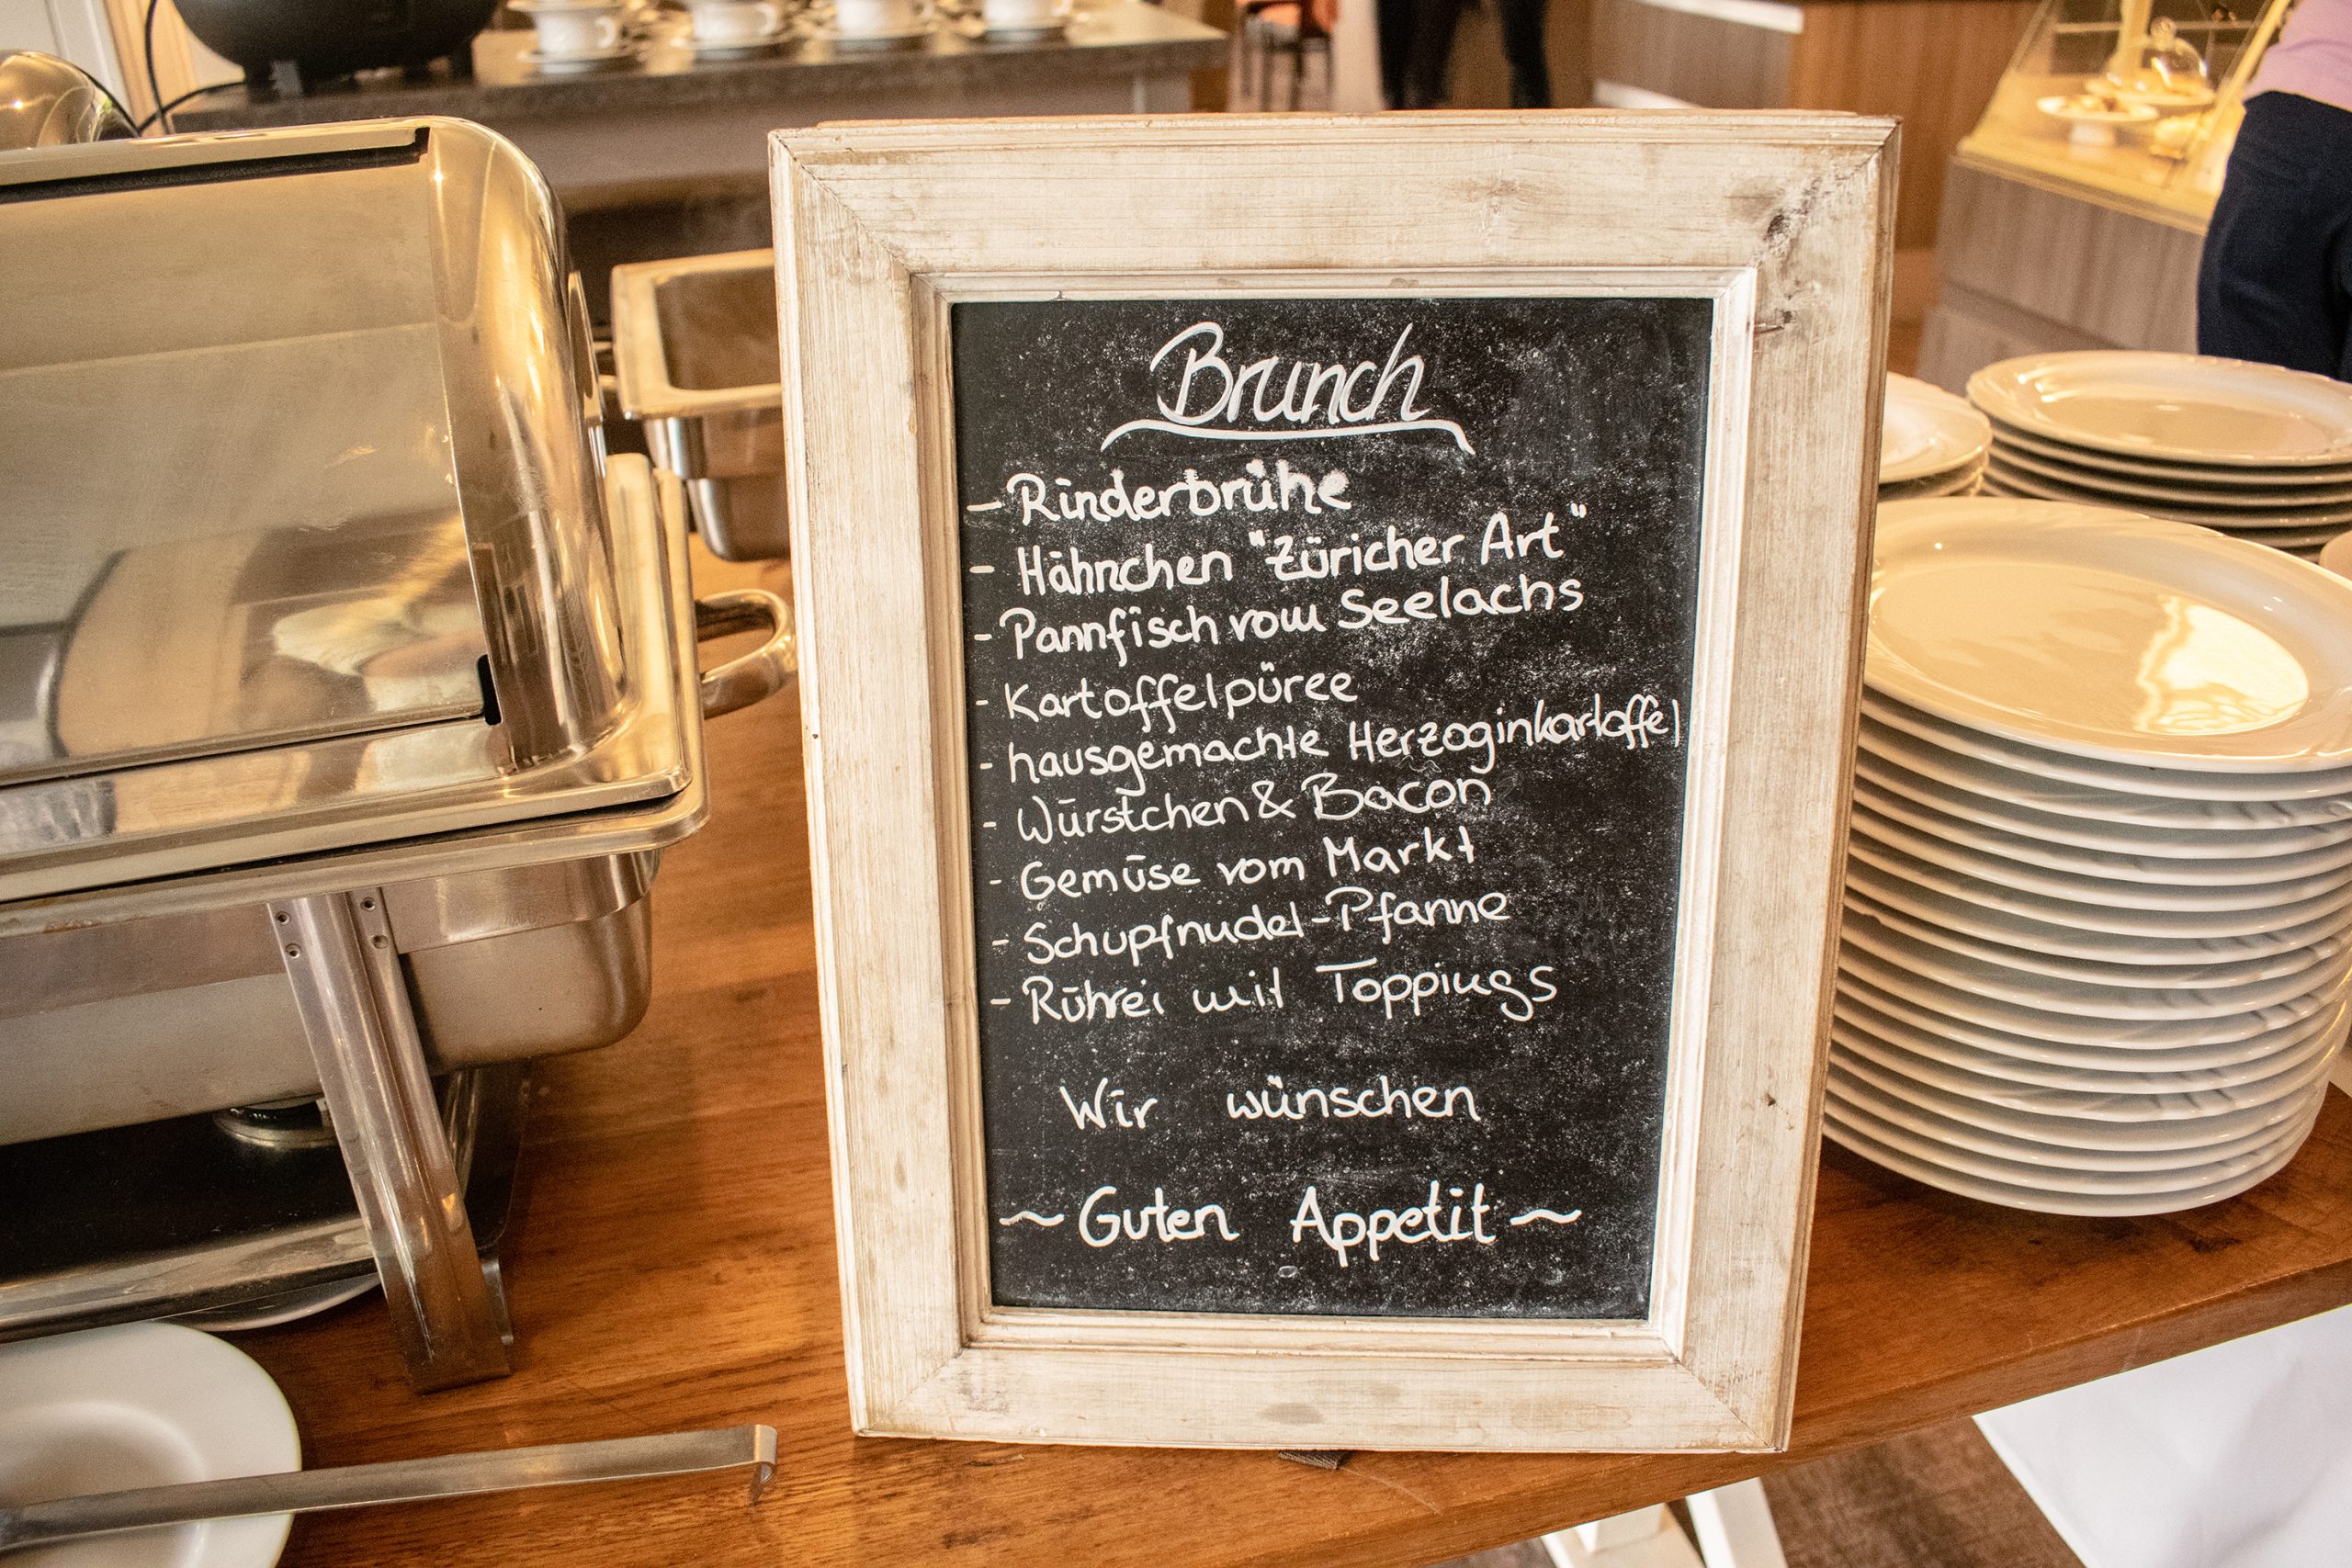 Brunch
- Rinderbrühe
- Hähnchen "Züricher Art"
- Pannfisch vom Seelachs
- Kartoffelpüree
- hausgemachte Herzoginkartoffel
- Würstchen & Bacon
- Gemüse vom Markt
- Schupfnudel-Pfanne
- Rührei mit Toppings
Wir wünschen
~ Guten Appetit ~